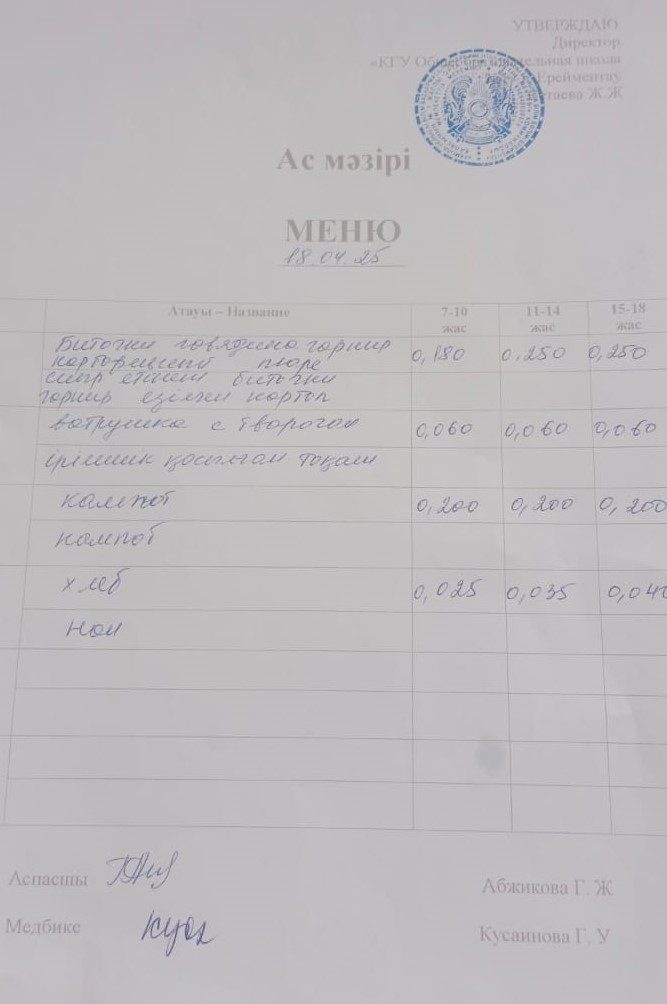 УТВЕРЖДАЮ
Директор
«КГУ школа
Ерейментау
Ж.Ж
Ас мәзірі
МЕНЮ
18.04.25
Атауы – Название 7-10 жас 11-14 жас 15-18 жас
Биточки говядина гарнир
картофельный пюре 0,180 0,250 0,250
сиыр етінен биточки
гарнир езілген картоп
ватрушка с творогом 0,060 0,060 0,060
ірімшік қосылған тоқаш
кампот 0,200 0,200 0,200
компот
хлеб 0,025 0,035
нан
Аспасшы Абжикова Г. Ж
Медбике Кусаинова Г. У